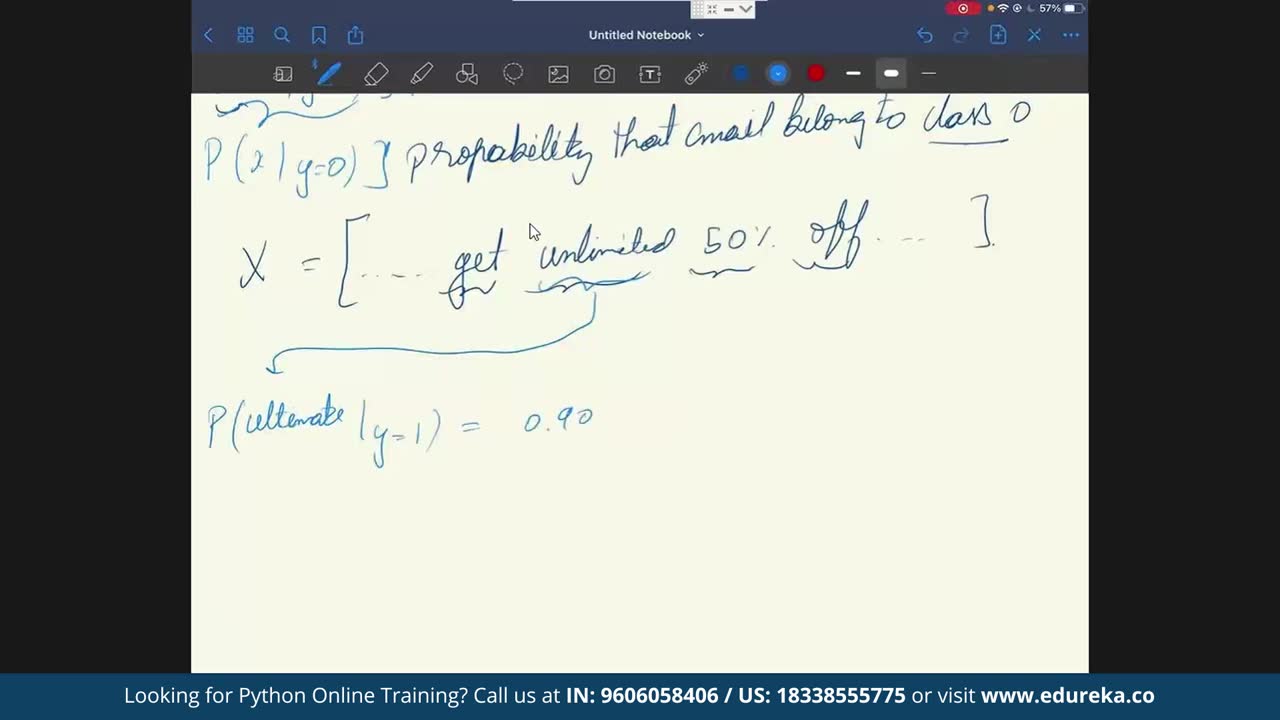 57%
Untitled Notebook
P(x | y=0) ] propability that email belong to class 0
X = [ ..... get unlimited 50% off ..... ]
P(ultemate | y=1) = 0.90
Looking for Python Online Training? Call us at IN: 9606058406 / US: 18338555775 or visit www.edureka.co